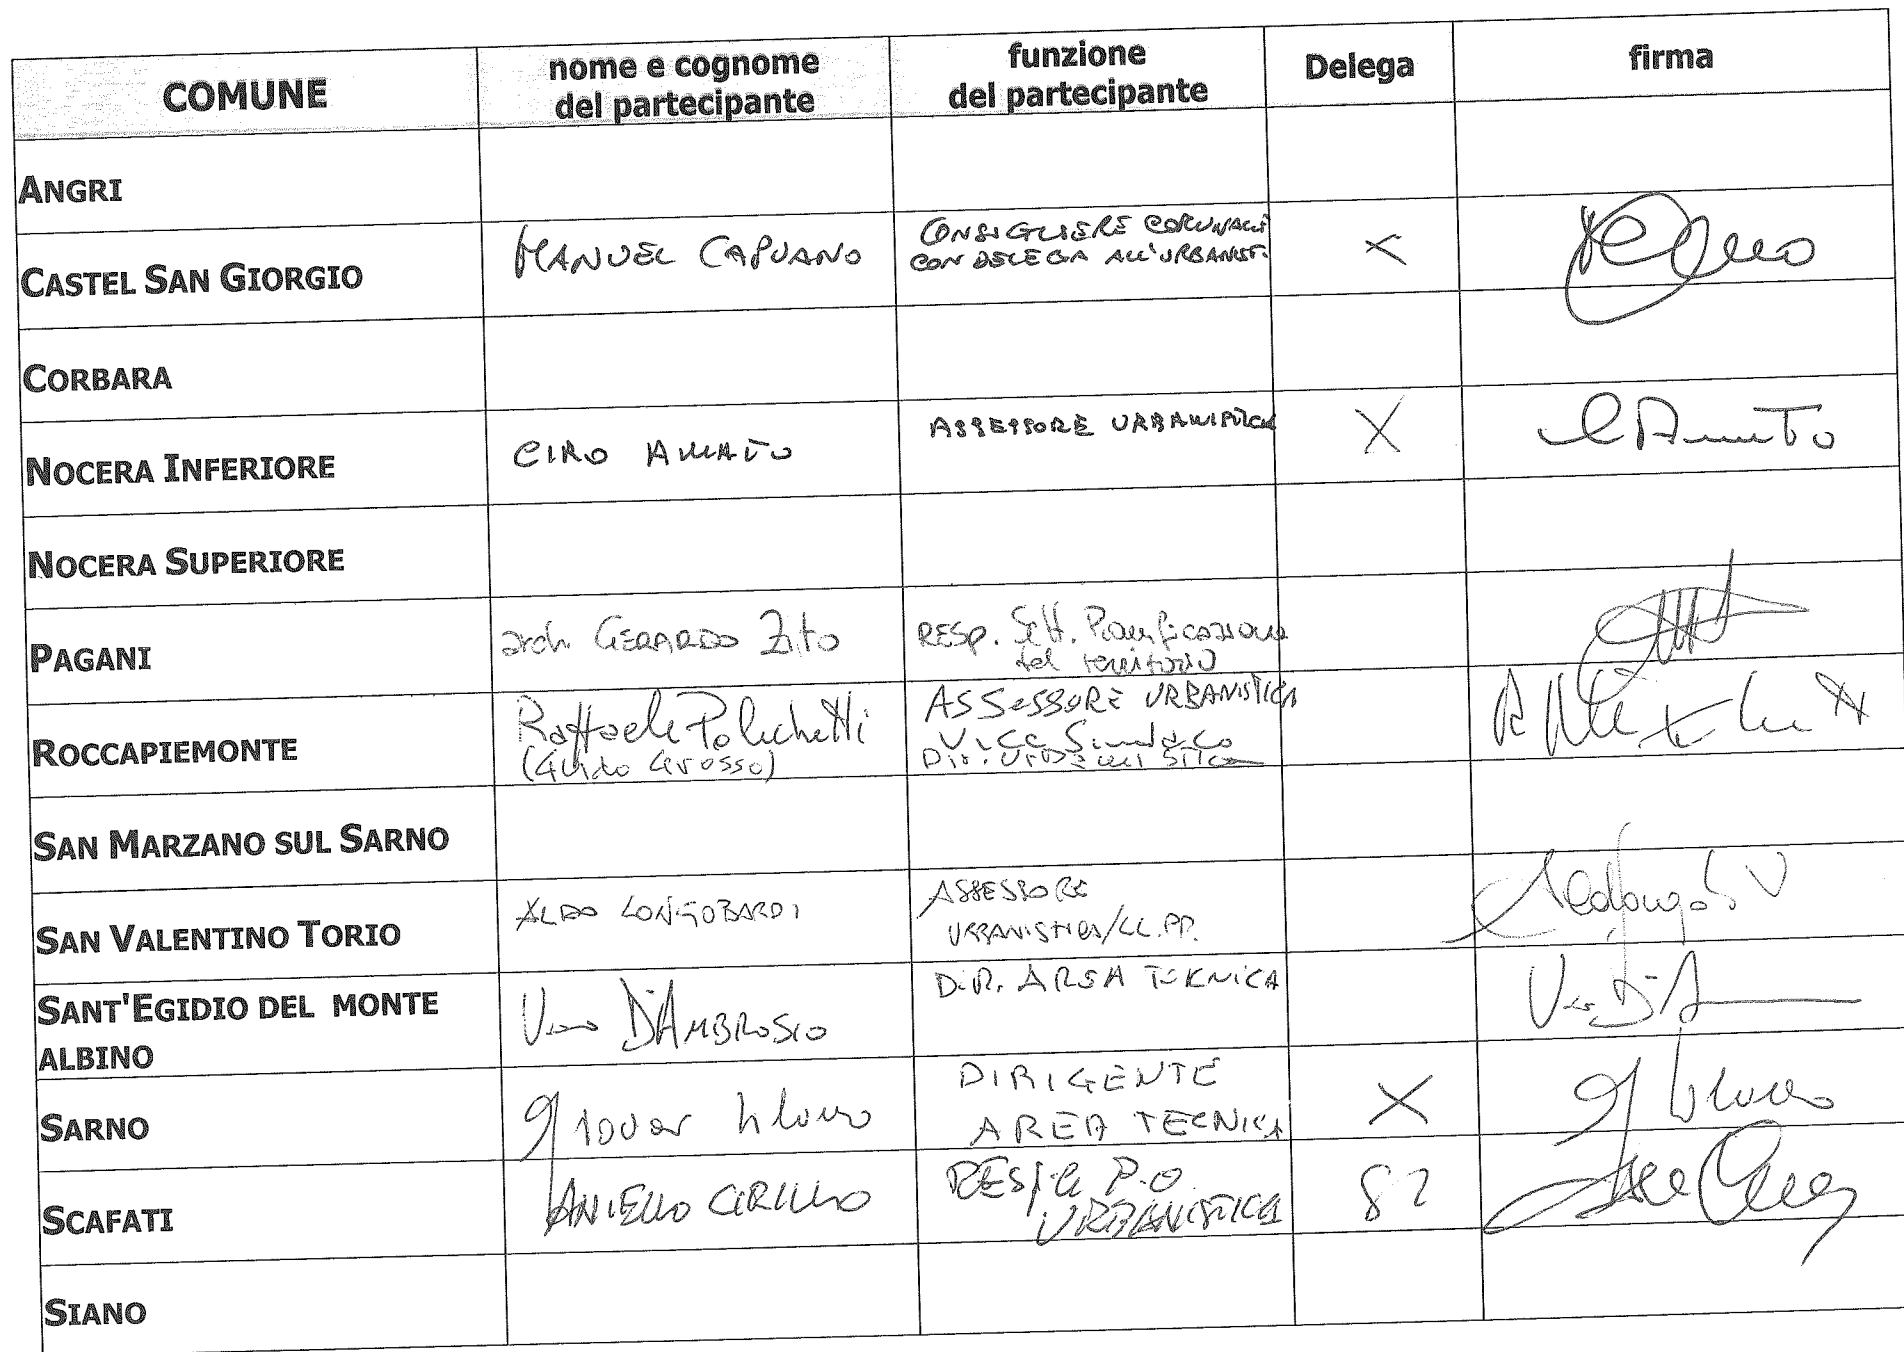 COMUNE
nome e cognome
del partecipante
funzione
del partecipante
Delega
firma
ANGRI
CASTEL SAN GIORGIO
MANUEL CAPUANO
CONSIGLIERE COMUNALE
CON DELEGA ALL'URBANIST.
X
CORBARA
NOCERA INFERIORE
CIRO AMATO
ASSESSORE URBANISTICA
X
C Amato
NOCERA SUPERIORE
PAGANI
arch. GERARDO Zito
RESP. Sett. Pianificazione
del territorio
ROCCAPIEMONTE
Raffaele Polichetti
(Guido Grosso)
ASSESSORE URBANISTICA
Vice Sindaco
Dir. Urbanistica
SAN MARZANO SUL SARNO
SAN VALENTINO TORIO
ALDO LONGOBARDI
ASSESSORE
URBANISTICA/LL.PP.
SANT'EGIDIO DEL MONTE
ALBINO
D'AMBROSIO
DIR. AREA TEKNICA
SARNO
DIRIGENTE
AREA TECNICA
X
SCAFATI
ANIELLO CIRILLO
P.O.
URBANISTICA
SIANO